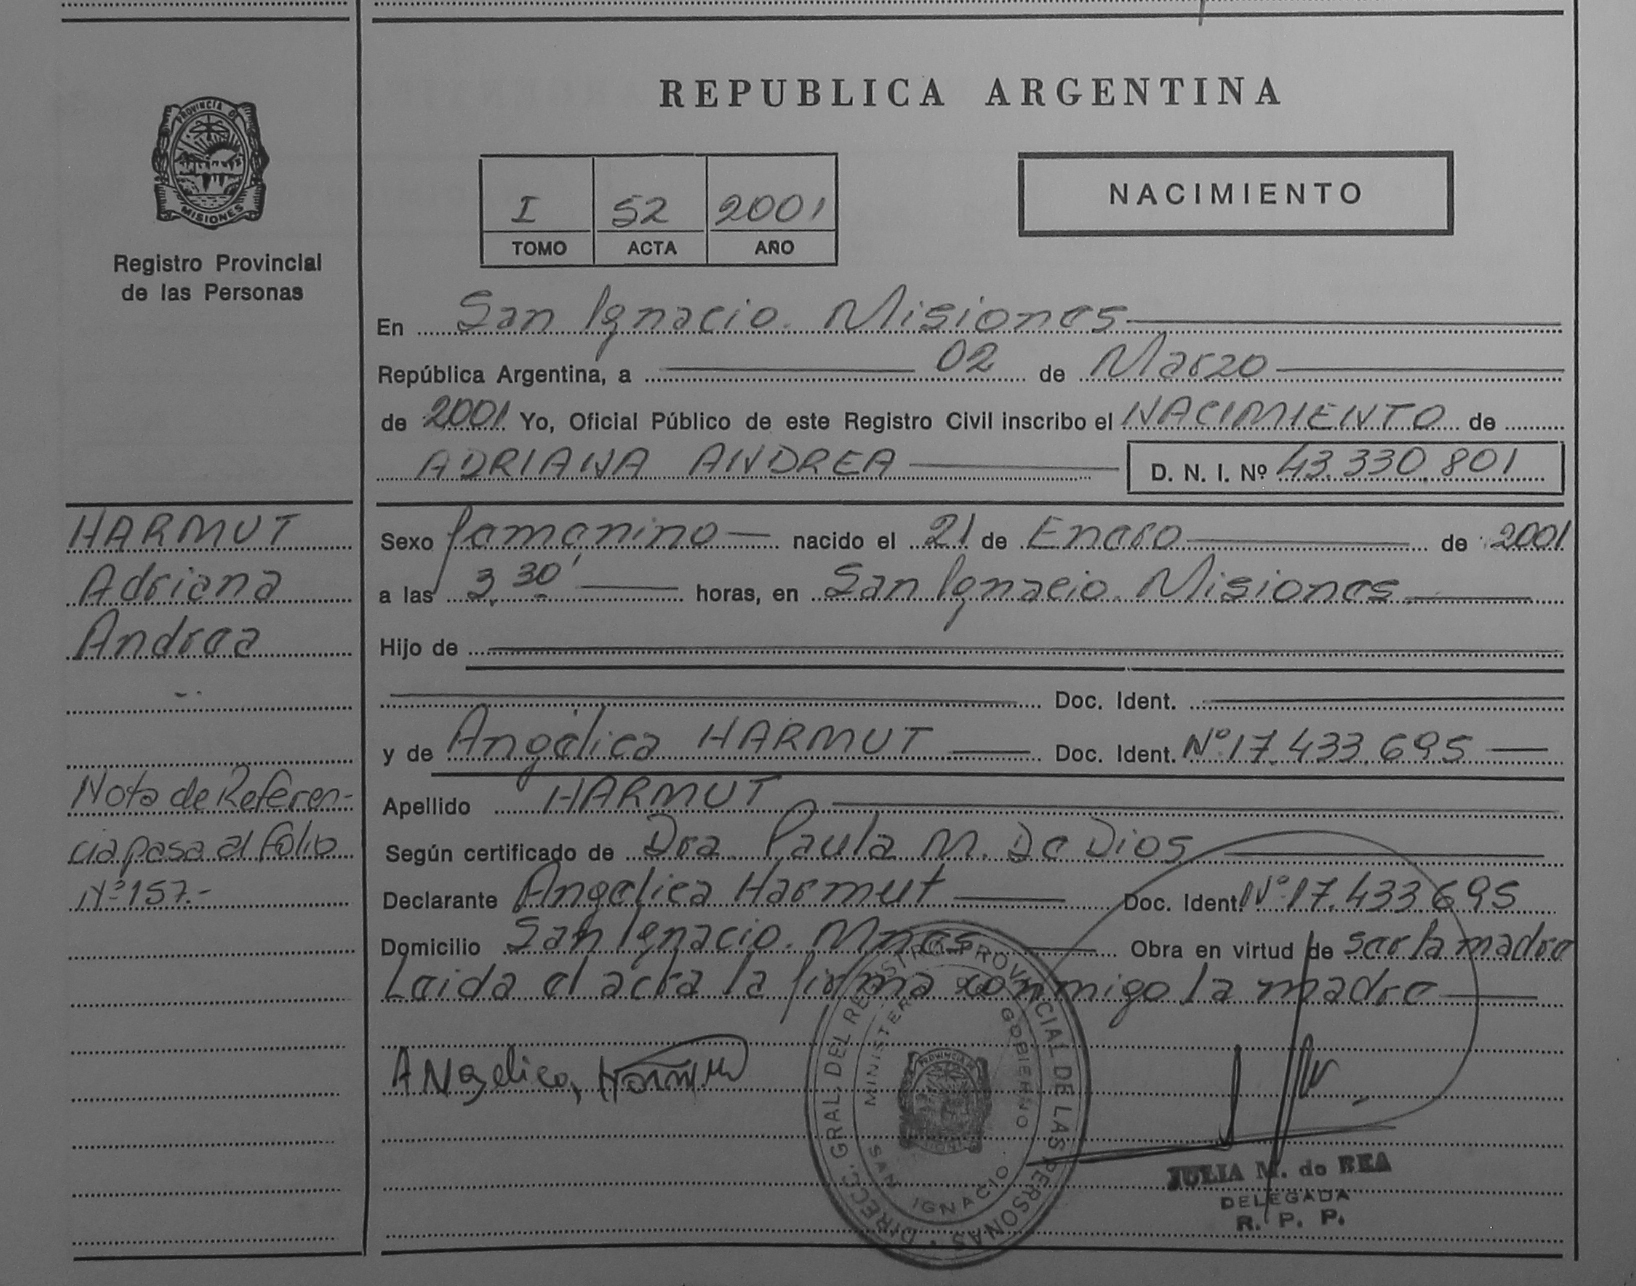 REPUBLICA ARGENTINA
PROVINCIA DE
MISIONES
Registro Provincial
de las Personas
I 52 2001
TOMO ACTA AÑO
NACIMIENTO
En San Ignacio. Misiones
República Argentina, a 02 de Marzo
de 2001 Yo, Oficial Público de este Registro Civil inscribo el NACIMIENTO de
ADRIANA ANDREA D. N. I. Nº 43.330.801
HARMUT
Adriana
Andrea
Sexo femenino nacido el 21 de Enero de 2001
a las 3,30' horas, en San Ignacio. Misiones.
Hijo de
Doc. Ident.
y de Angélica HARMUT Doc. Ident. Nº 17.433.695
Nota de Referen-
cia pasa al folio
Nº 157.-
Apellido HARMUT
Según certificado de Dra. Paula M. De Dios
Declarante Angelica Harmut Doc. Ident. Nº 17.433.695
Domicilio San Ignacio. Mnes Obra en virtud de ser la madre
Leida el acta la firma conmigo la madre
ANgelica, Harmut
DIRECC. GRAL. DEL REGISTRO PROVINCIAL DE LAS PERSONAS
MINISTERIO DE GOBIERNO
SAN IGNACIO
JULIA M. de REA
DELEGADA
R. P. P.